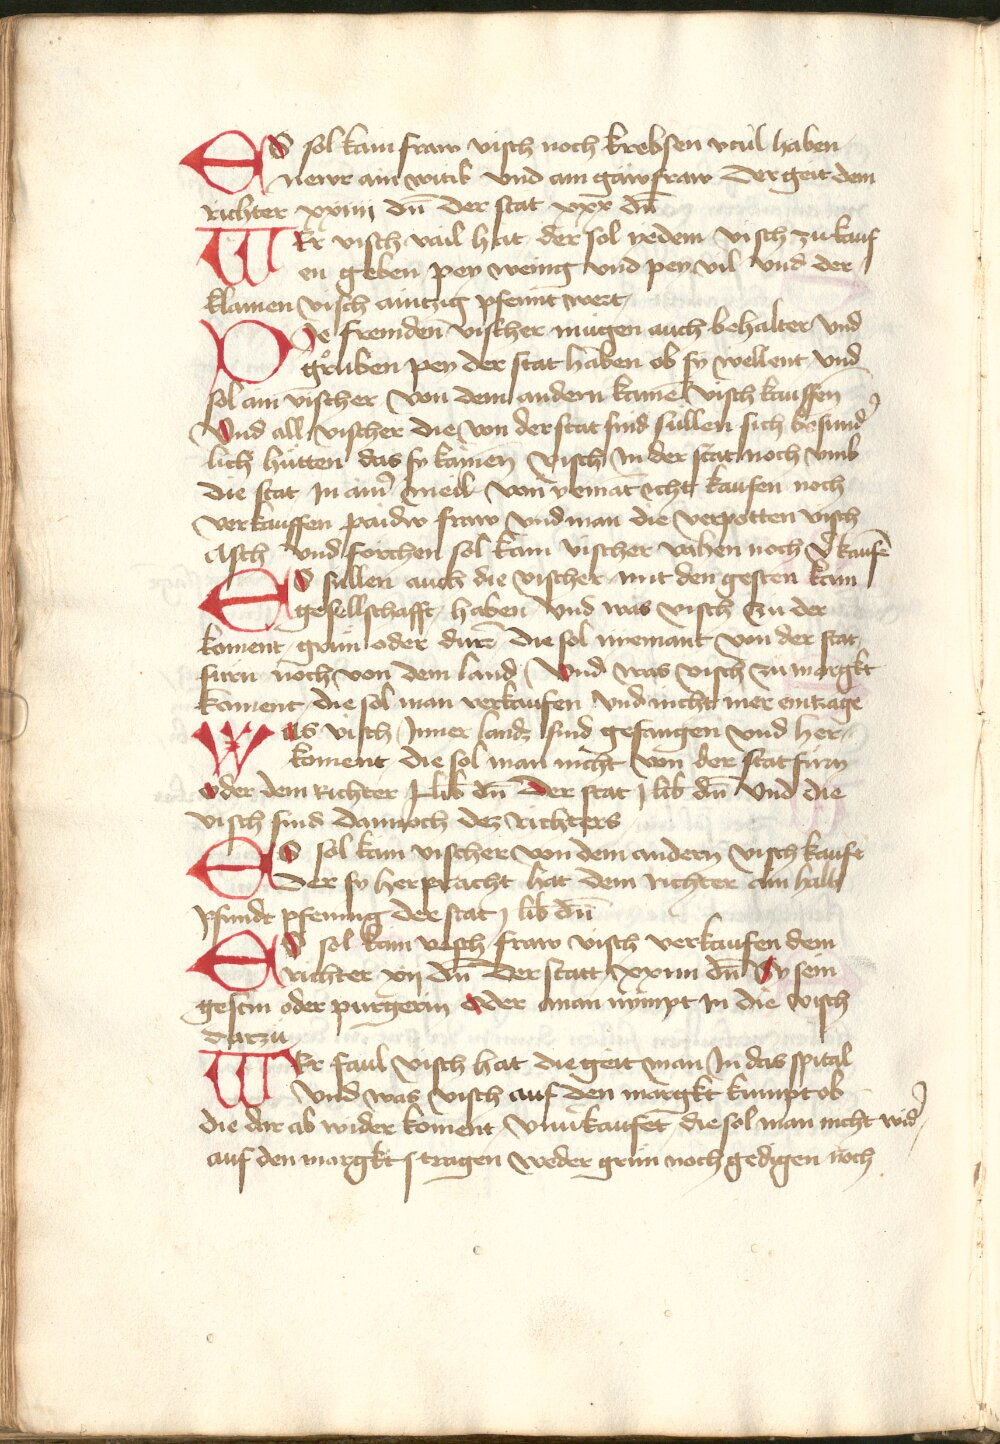 ES sol kain fraw visch noch krebsen vail haben
newr ain witib Vnd ain gäwfraw Der geit dem
Richter xxiiij dn̄ Der stat xxx dn̄
WEr visch vail hat der sol yedem visch zu kauf
en geben pey weing vnd pey vil Vnd der
klainen visch aintzig pfennt wert
DIe fremden vischer mugen auch behalter Vnd
grůben pey der stat haben ob sy wellent Vnd
sol ain vischer Von dem andern kainē Visch kauffen
Vnd all vischer die von der stat sind süllen sich besund͛
lich hütten das sy kainen Visch In der stat noch vmb
die stat In ain͛ meil Von yemāt icht kaufen noch
verkauffen paidw fraw Vnd man die verpotten visch
Asch Vnd forchen sol kain vischer vahen noch v͛kaufē
ES süllen auch die vischer mit den gesten kain
gesellschafft haben Vnd was visch zu der
koment grün oder dürr die sol niemant von der stat
fürn noch von dem land Vnd was visch zu margkt
koment die sol man verkaufen Vnd nicht mer eintrage
Was visch Inner landz sind gefangen vnd her
koment die sol man nicht von der stat fürn
oder dem Richter j lib dn̄ Der stat j lib dn̄ Vnd die
visch sind dannoch dez richters
ES sol kain vischer von dem andern visch kauff
Der sy her pracht hat dem richter ain halb
pfundt pfennig der stat j lib dn̄
ES sol kain visch fraw visch verkaufen dem
richter xij dn̄ Der statt xxiiij dn̄ Sy sein
gestin oder purgerin Oder man nympt In die visch
darzu
WEr faul visch hat die geit man In das spital
Vnd was visch auf den margkt kumpt ob
die dar ab wider koment vnu͛kaufet die sol man nicht wid͛
auf den margkt tragen weder grün noch gedigen noch